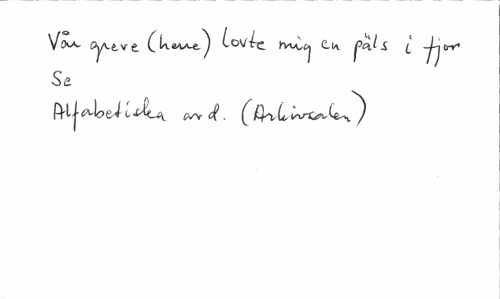 Vår greve (herre) lovte mig en päls i fjor
Se
Alfabetiska avd. (Arkivsalen)